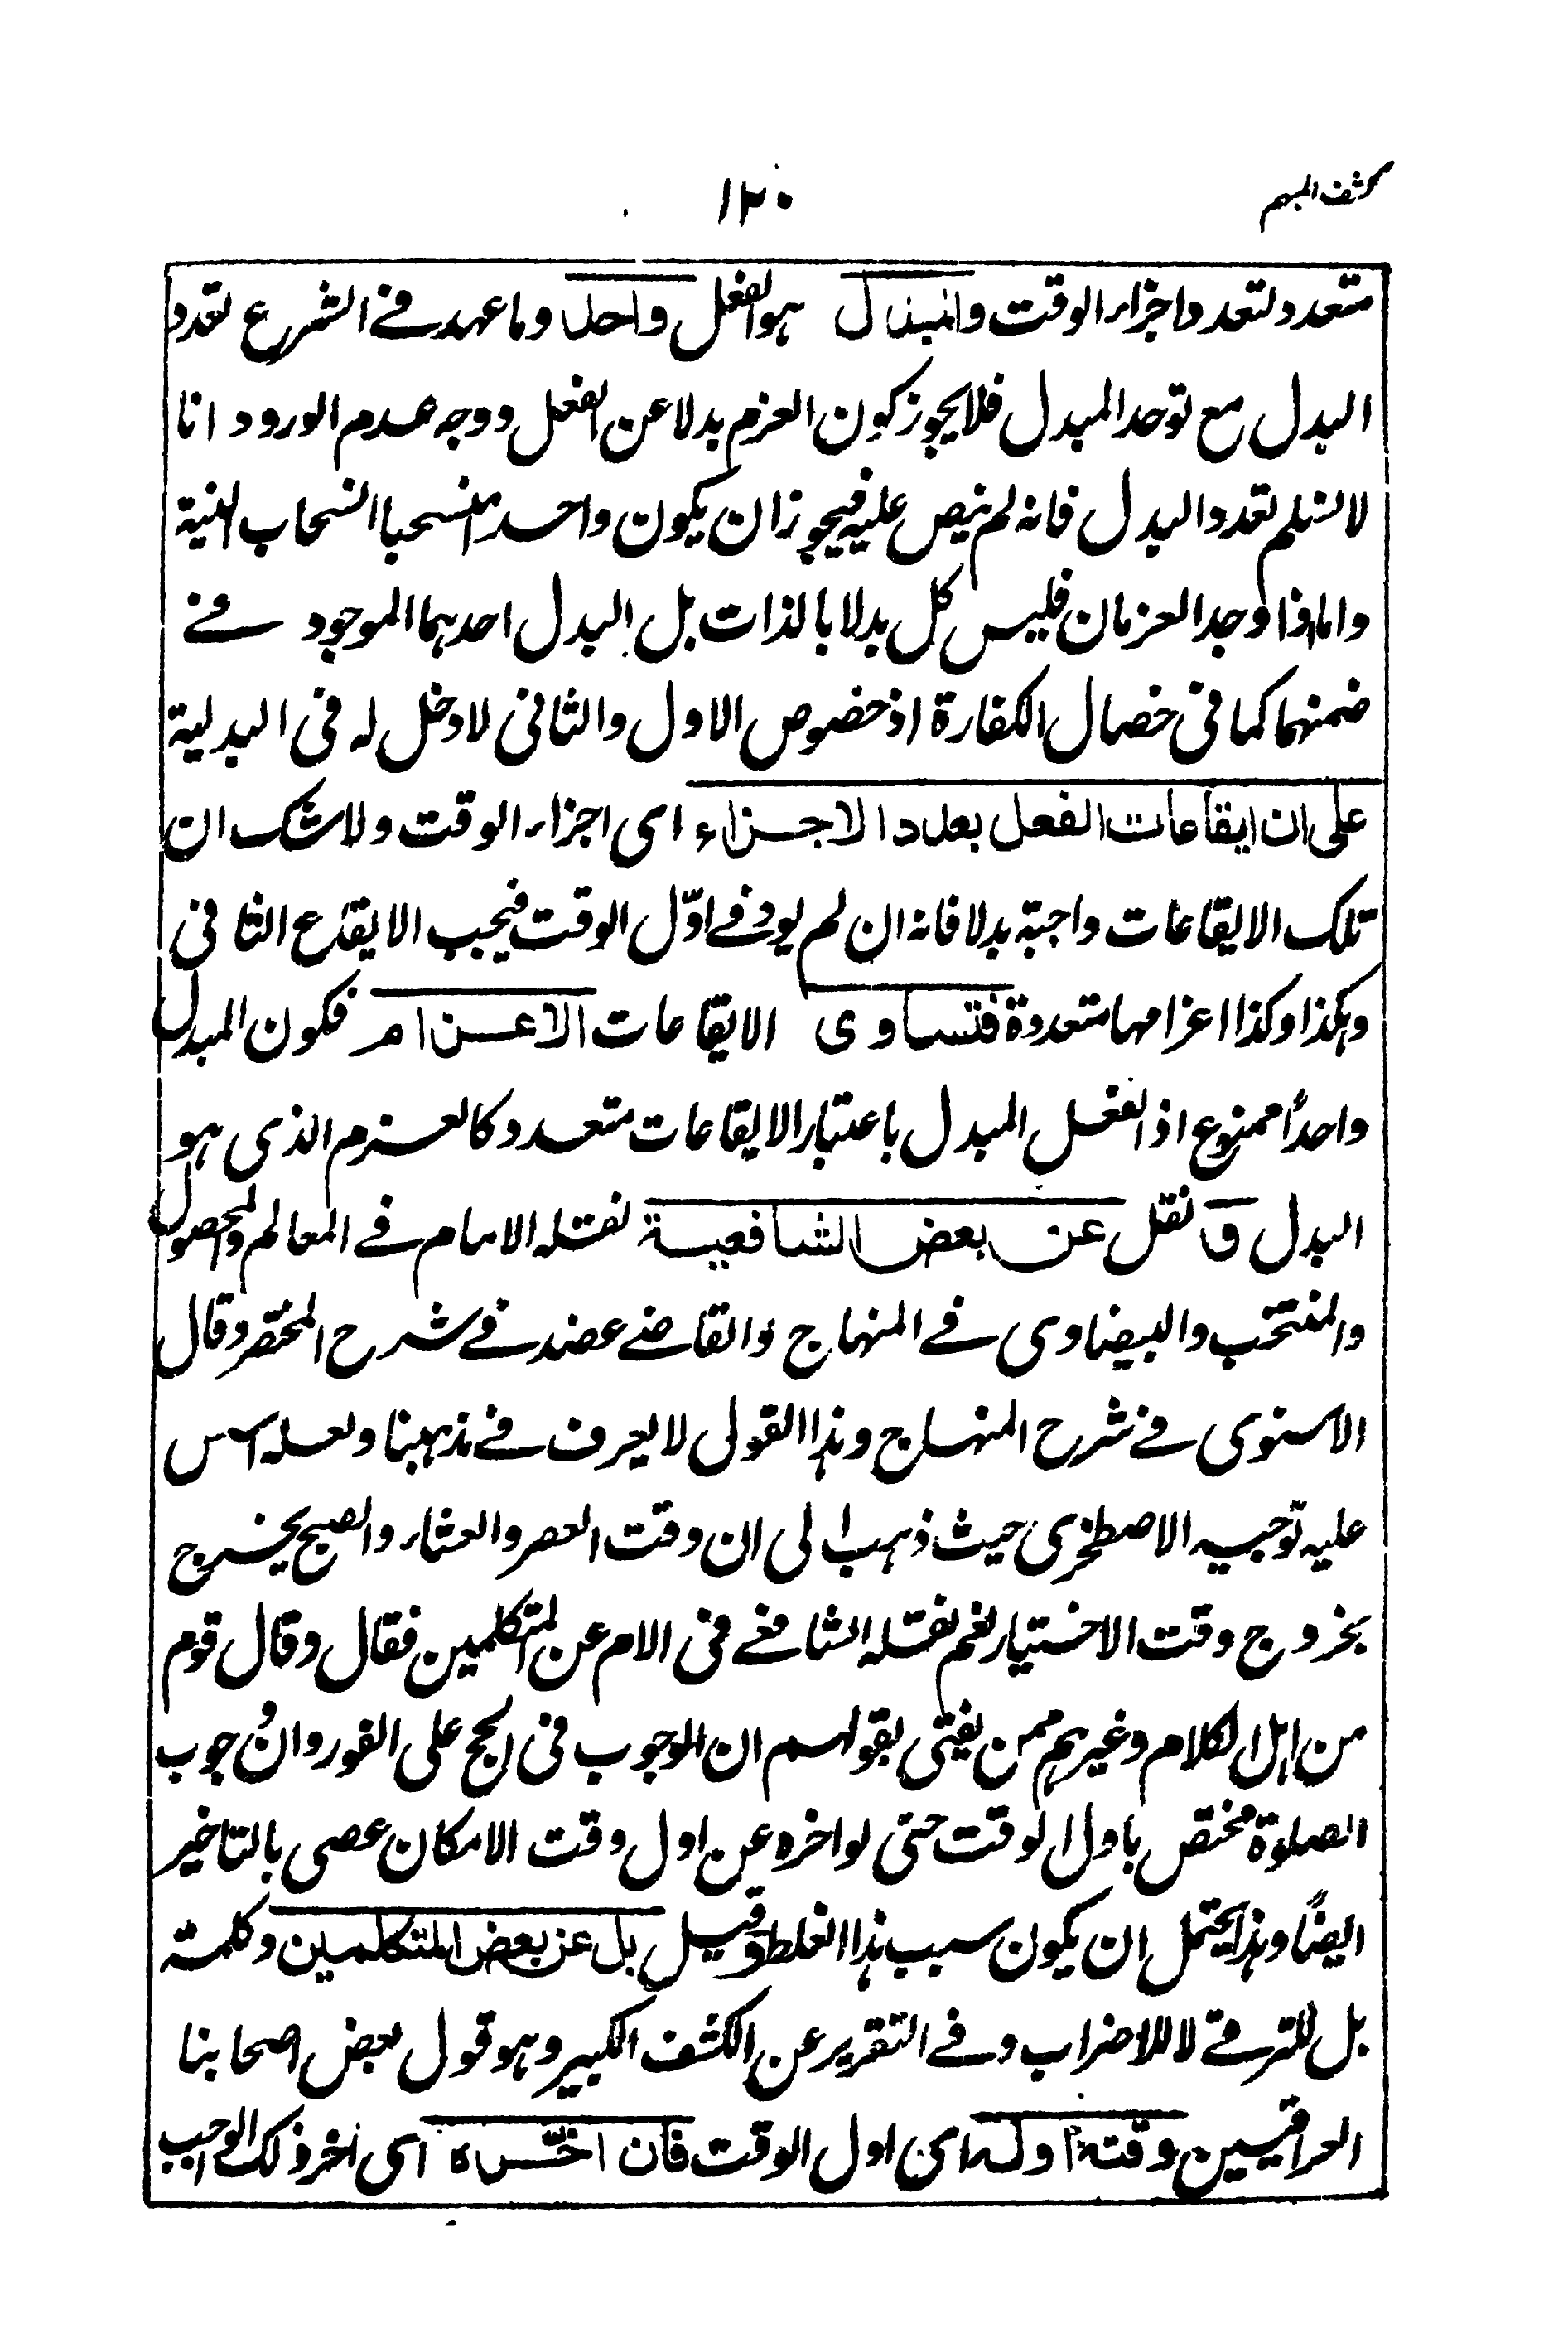 كشف المبهم
١٢٠
متعدد لتعدد اجزاء الوقت والمبدل هو الفعل واحد وما عهد فى الشرع تعدد
البدل مع توحد المبدل فلا يجوز كون العزم بدلا عن الفعل ووجه عدم الورود انا
لا نسلم تعدد البدل فانه لم ينص عليه فيجوز ان يكون واحدا منسحبا انسحاب النية
واما اذا وجد العزمان فليس كل بدلا بالذات بل البدل احدهما الموجود فى
ضمنهما كما فى خصال الكفارة اذ خصوص الاول والثانى لا دخل له فى البدلية
على ان ايقاعات الفعل بعدد الاجزاء اى اجزاء الوقت ولا شك ان
تلك الايقاعات واجبة بدلا فانه ان لم يود فى اوّل الوقت فيجب الايقاع الثانى
وهكذا وكذا اعزامها متعددة فتساوى الايقاعات الاعزام فكون المبدل
واحداً ممنوع اذ الفعل المبدل باعتبار الايقاعات متعدد كالعزم الذى هو
البدل ونقل عن بعض الشافعية نقله الامام فى المعالم والمحصول
والمنتخب والبيضاوى فى المنهاج والقاضى عضد فى شرح المختصر وقال
الاسنوى فى شرح المنهاج وهذا القول لا يعرف فى مذهبنا ولعله اسس
عليه توجيه الاصطخرى حيث ذهب الى ان وقت العصر والعشاء والصبح يخرج
بخروج وقت الاختيار نعم نقله الشافعى فى الام عن المتكلمين فقال وقال قوم
من اهل الكلام وغيرهم ممن يفتى بقولهم ان الوجوب فى الحج على الفور وان وجوب
الصلوة مختص باول الوقت حتى لو اخره عن اول وقت الامكان عصى بالتاخير
ايضاً وهذا يحتمل ان يكون سبب هذا الغلط وقيل بل عن بعض المتكلمين وكلمة
بل للترقى لا للاضراب وفى التقرير عن الكشف الكبير وهو قول بعض اصحابنا
العراقيين وقته اوله اى اول الوقت فان اخّره اى اخر ذلك الواجب